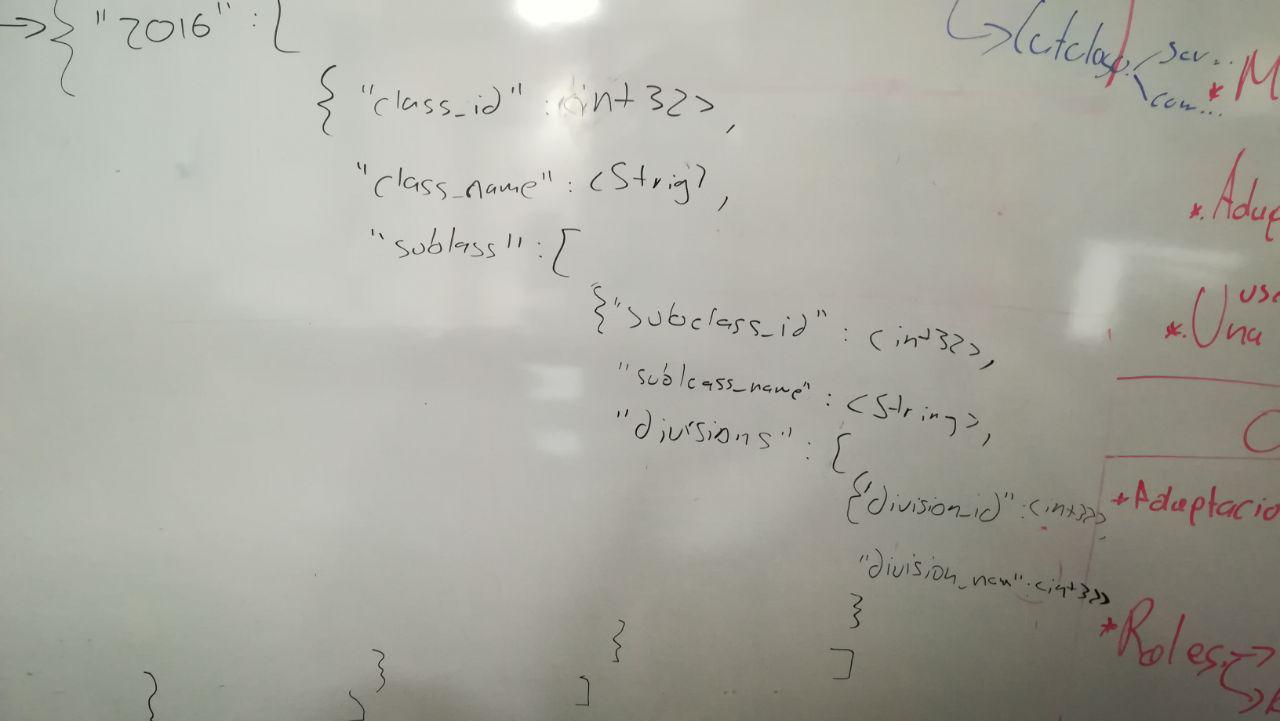 →{ "2016" : [
{ "class_id" : <int 32>,
"class_name" : <Strig>,
"sublass" : [
{ "subclass_id" : <int32>,
"sublcass_name" : <String>,
"divisions" : [
{ "division_id" : <int32>,
"division_nam" : <int32>
}
]
}
]
}
]
}
↳
ser...
com...
* M
*. Adap
*. Una
* Adaptacio
* Roles →